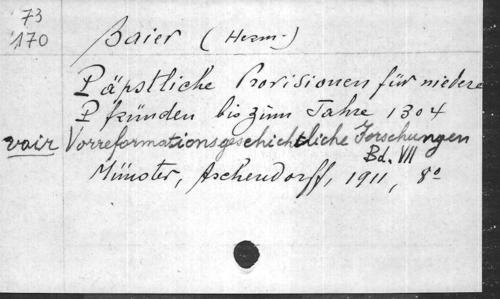 73
170
Baier (Herm.)
Päpstliche Provisionen für niedere
Pfründen bis zum Jahre 1304
voir Vorreformationsgeschichtliche Forschungen
Bd. VII
Münster, Aschendorff, 1911, 8º